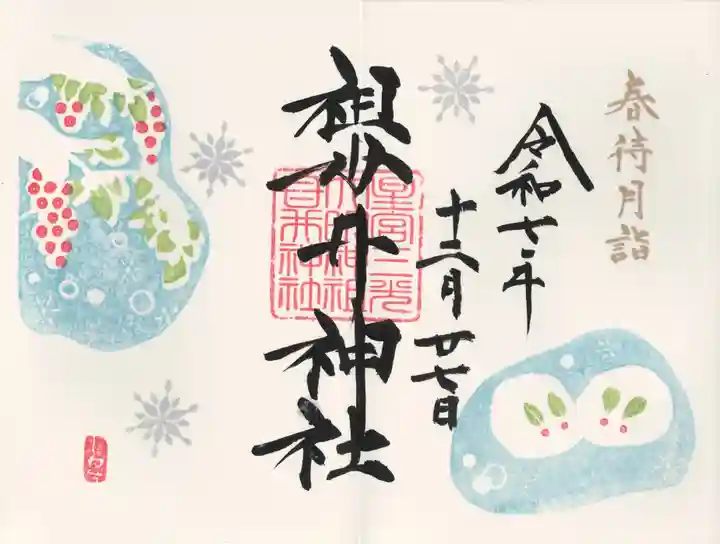 春待月詣
令和七年
十二月廿七日
祖母井神社